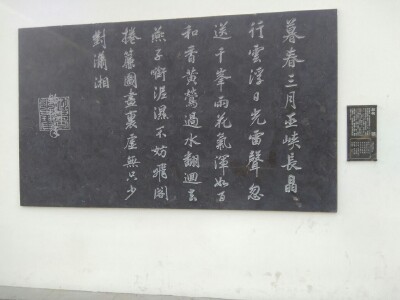 暮春三月巫峽長晶晶
行雲浮日光雷聲忽
送千峯雨花氣渾如百
和香黃鶯過水翻迴去
燕子銜泥濕不妨飛閣
捲簾圖畫裏虛無只少
對瀟湘